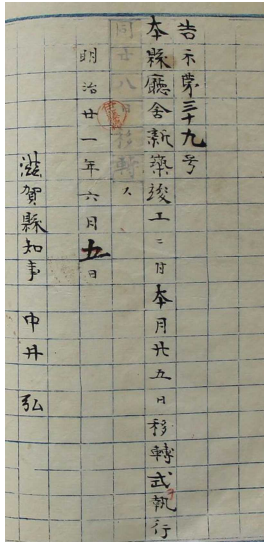 告示第三十九号
本縣廳舍新築竣工ニ付本月廿五日移轉式執行
同廿八日移轉ス
明治廿一年六月五日
滋賀縣知事 中井 弘